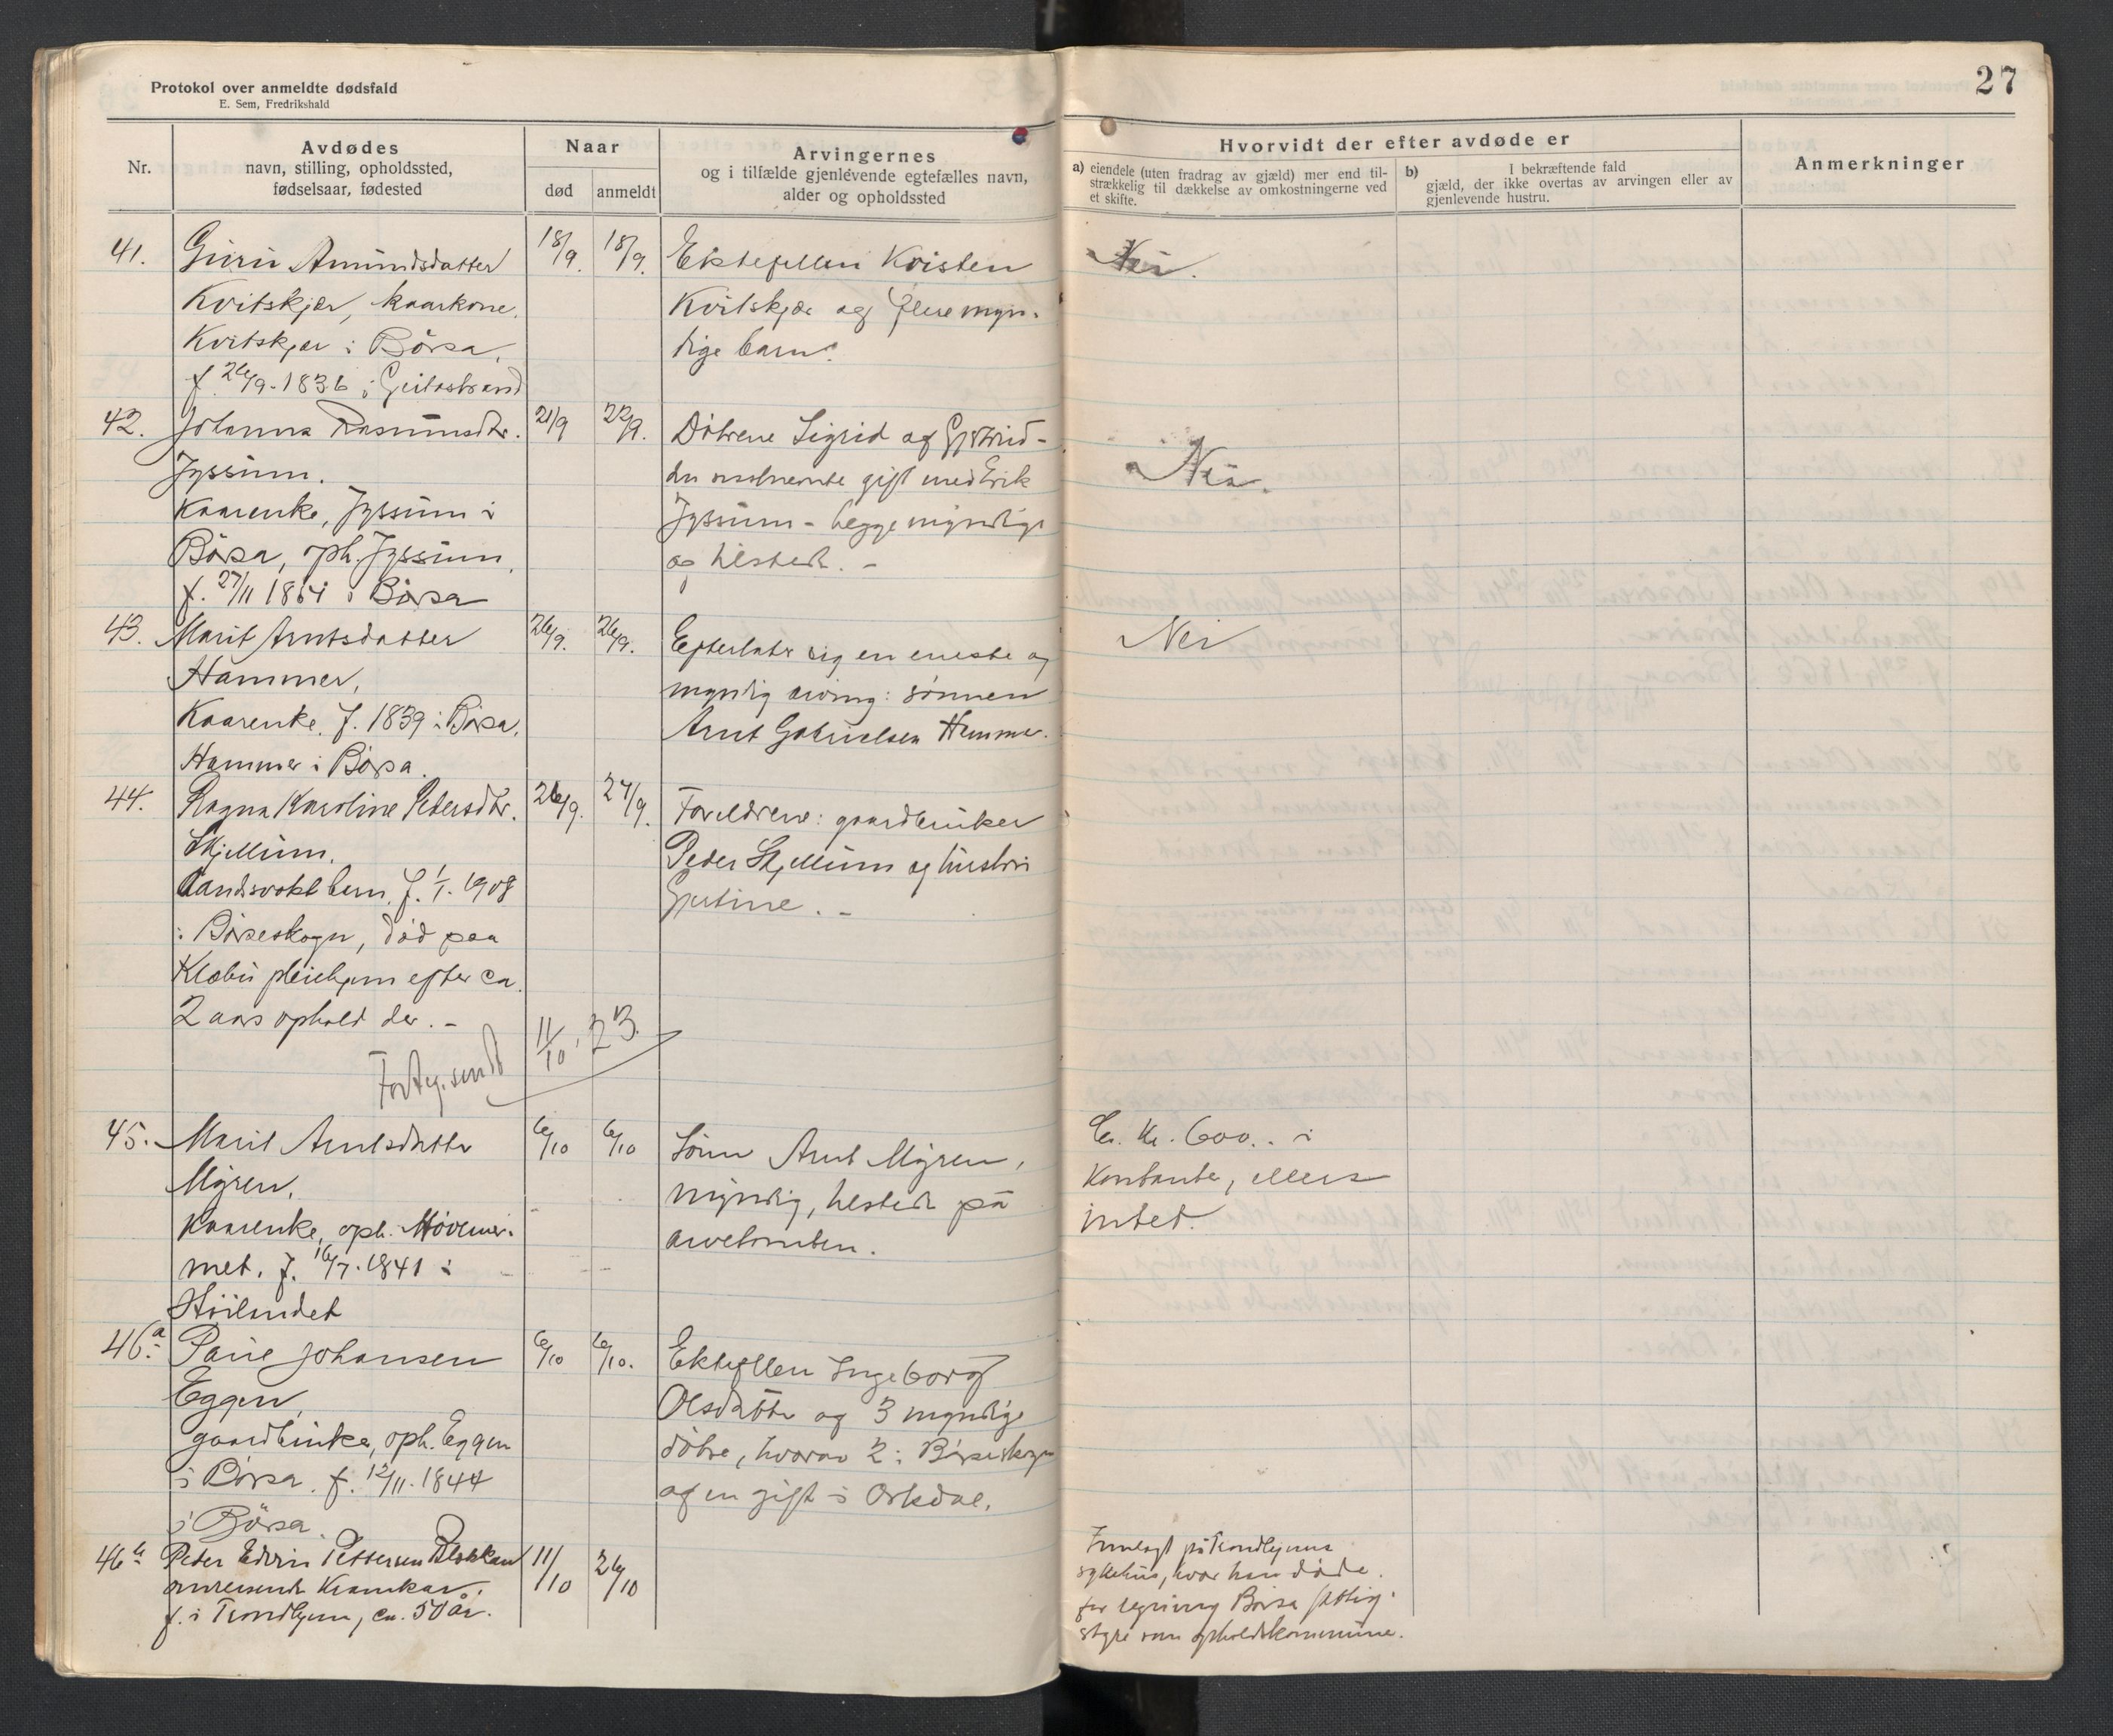 Protokol over anmeldte dødsfald
E. Sem, Fredrikshald
27
Nr.
Avdødes
navn, stilling, opholdssted,
fødselsaar, fødested
Naar
død
anmeldt
Arvingernes
og i tilfælde gjenlevende egtefælles navn,
alder og opholdssted
Hvorvidt der efter avdøde er
a) eiendele (uten fradrag av gjæld) mer end til-
strækkelig til dækkelse av omkostningerne ved
et skifte.
b) I bekræftende fald
gjæld, der ikke overtas av arvingen eller av
gjenlevende hustru.
Anmerkninger
41.
Guru Amundsdatter
Kvitskjær, kaarkone,
Kvitskjær i Börsa,
f. 26/9-1836 i Geitastrand
18/9.
18/9.
Ektefellen Kristen
Kvitskjær og flere myn-
dige barn.
Nei.
42.
Johanna Rasmusdtr.
Jyssum.
Kaarenke, Jyssum i
Börsa, oph. Jyssum,
f. 27/11 1854 i Börsa
21/9
22/9.
Døtrene Sigrid og Gjertrud-
den gift med Erik
Jyssum - begge myndige
og tilstede. -
Nei.
43.
Marit Arntsdatter
Hammer,
Kaarenke. f. 1839 i Börsa.
Hammer i Börsa.
26/9.
26/9.
Efterlater sig en eneste og
myndig arving: sønnen
Arnt Gabrielsen Hammer.
Nei
44.
Ragna Karoline Pedersdtr.
Skjellum.
Aandsvakt barn, f. 1/1. 1908
i Børseskogn, død paa
Klæbu pleiehjem efter ca.
2 aars ophold der. -
26/9.
27/9.
Foreldrene: gaardbruker
Peder Skjellum og hustru
Gjertine. -
Forteg. sendt 11/10. 23.
45.
Marit Arntsdatter
Myren.
Kaarenke, oph.
met. f. 16/7. 1841 i
Høilandet
6/10
6/10
Sønn Arnt Myren,
myndig, tilstede på
arvetomten.
Ca. kr. 600.. i
Kontanter, ellers
intet.
46a.
Paul Johansen
Eggen,
gaardbruker, oph. Eggen
i Börsa. f. 12/11. 1844
i Börsa.
6/10
6/10.
Ektefellen Ingeborg
Olsdatter og 3 myndige
døtre, hvorav 2 i Børseskogn
og en gift i Orkdal.
46b
Peder Edvin Pettersen
omreisende Kramkar.
f. i Trondhjem, ca. 50 år.
11/10
26/10
Innlagt på Trondhjems
sykehus, hvor han døde.
for regning Börsa fattig-
styre som opholdskommune.